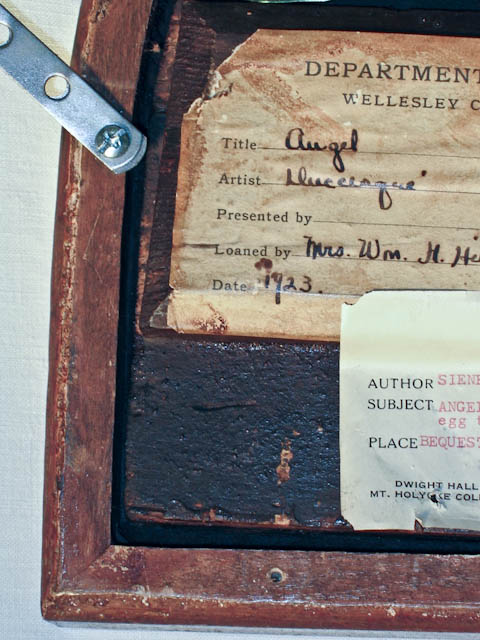 DEPARTMENT
WELLESLEY C
Title Angel
Artist
Presented by
Loaned by Mrs. Wm. H. He
Date 1923.
AUTHOR SIENE
SUBJECT ANGEL
egg t
PLACE BEQUEST
DWIGHT HALL
MT. HOLYOKE COLL